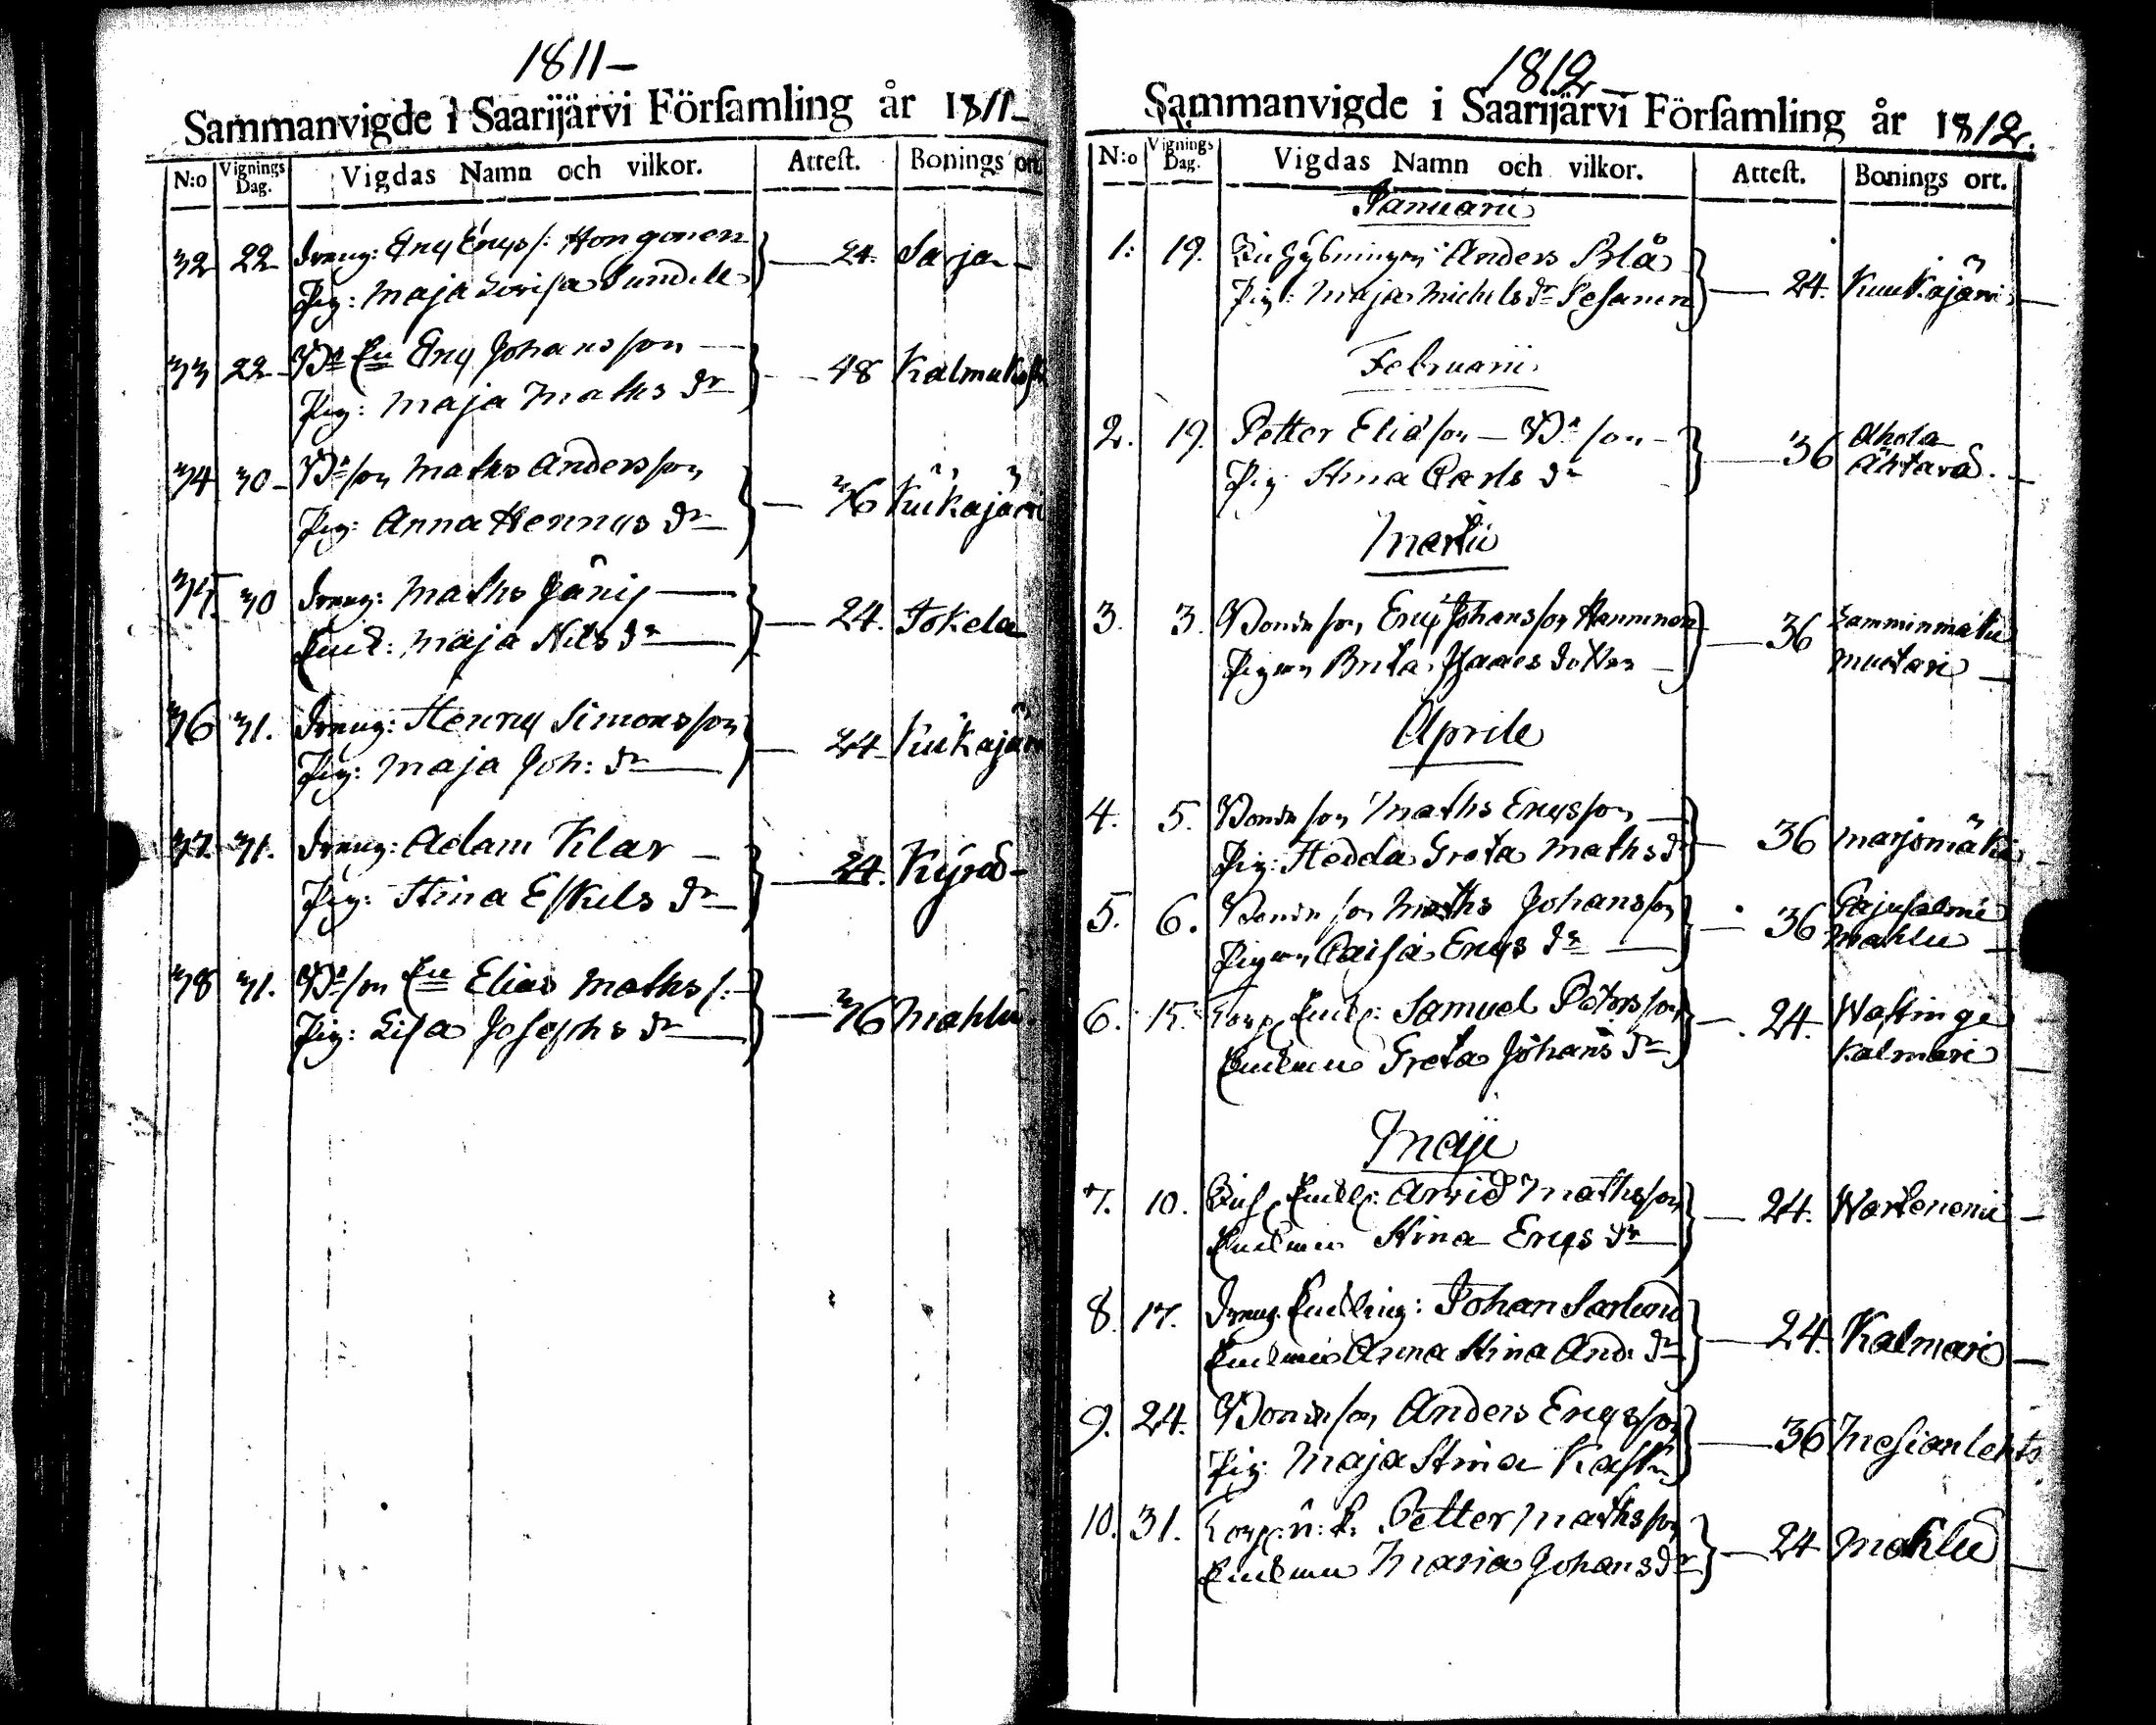 1811–
Sammanvigde i Saarijärvi Förſamling år 1811–
N:o Vignings Dag. Vigdas Namn och vilkor. Atteſt. Bonings ort.
32 22 Dreng: Eric Erics s: Hongonen
Pig: Maja Lovisa Sundell 24. Sarja –
33 22 – Bde Enk Eric Johansson –
Pig: Maja Maths dr 48
34 30 – Bdeson Maths Andersson
Pig: Anna Henrics dr – 36 Kukajärvi
35. 30 Dreng: Maths
Enk: Maja Nils dr 24. Tokela
36 31. Dreng: Henric Simonsson
Pig: Maja Joh: dr 24 Kukajärvi
37. 31. Dreng: Adam Klar –
Pig: Stina Eskels dr – 24. Kyrö –
38 31. Bdeson Enk Elias Maths s: –
Pig: Lisa Josephs dr 36 Mahlu
1812 –
Sammanvigde i Saarijärvi Förſamling år 1812.
N:o Vignings Dag. Vigdas Namn och vilkor. Atteſt. Bonings ort.
Januarii
1: 19. Anders Blå
Pig: Maja Michels dr Pesanen 24. Kuukajärvi
Februarii
2. 19. Petter Eliasson – Bde son –
Pig: Stina Carls dr 36 Ahola
Ähtäri
Martii
3. 3. Bondeson Eric Johansson Hanninen
Pigan Brita Isaacs dotter – 36 Lamminmäki
Muitari
Aprile
4. 5. Bondeson Maths Ericsson
Pig: Hedda Greta Maths dr 36 Marjomäki
5. 6. Bondeson Maths Johansson
Pigan Caisa Erics dr 36 Pajusalmi
Mahlu
6. 15. Torp Enkl: Samuel Petersson
Enkan Greta Johans dr 24. Wastinge
Kalmari
Maji
7. 10. Enkl: Arvid Mathsson
Enkan Stina Erics dr 24. Wartenemi –
8. 17. Dreng Enkling: Johan Sarlund
Enkan Anna Stina And: dr 24 Kalmari
9. 24. Bondeson Anders Ericsson
Pig: Maja Stina 36 Mesianlehto
10. 31. Torp: Petter Mathsson
Enkan Maria Johans dr 24 Mahlu